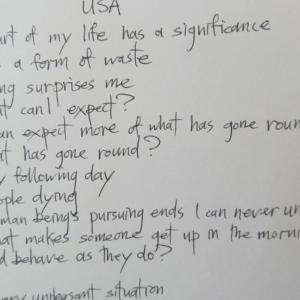 USA
art of my life has a significance
a form of waste
ng surprises me
at can I expect?
an expect more of what has gone roun
at has gone round?
y following day
ople dying
man beings pursuing ends I can never un
at makes someone get up in the morni
d behave as they do?
unpleasant situation